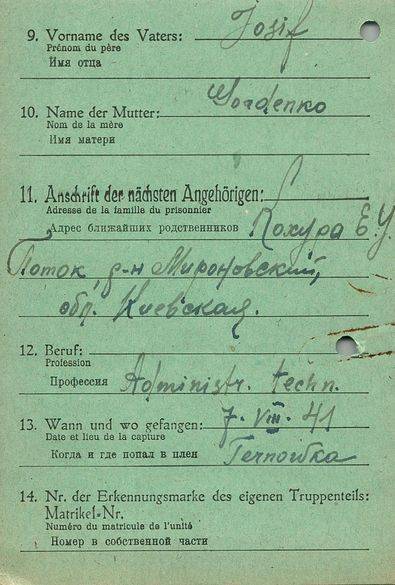 9. Vorname des Vaters: Josif
Prénom du père
Имя отца
10. Name der Mutter: Gordenko
Nom de la mère
Имя матери
11. Anschrift der nächsten Angehörigen:
Adresse de la famille du prisonnier
Адрес ближайших родственников Кохура Е. У.
Поток, р-н Мироновский,
обл. Киевская.
12. Beruf:
Profession
Профессия Administr. techn.
13. Wann und wo gefangen: 7. VIII. 41
Date et lieu de la capture
Когда и где попал в плен Ternowka
14. Nr. der Erkennungsmarke des eigenen Truppenteils:
Matrikel-Nr.
Numéro du matricule de l'unité
Номер в собственной части